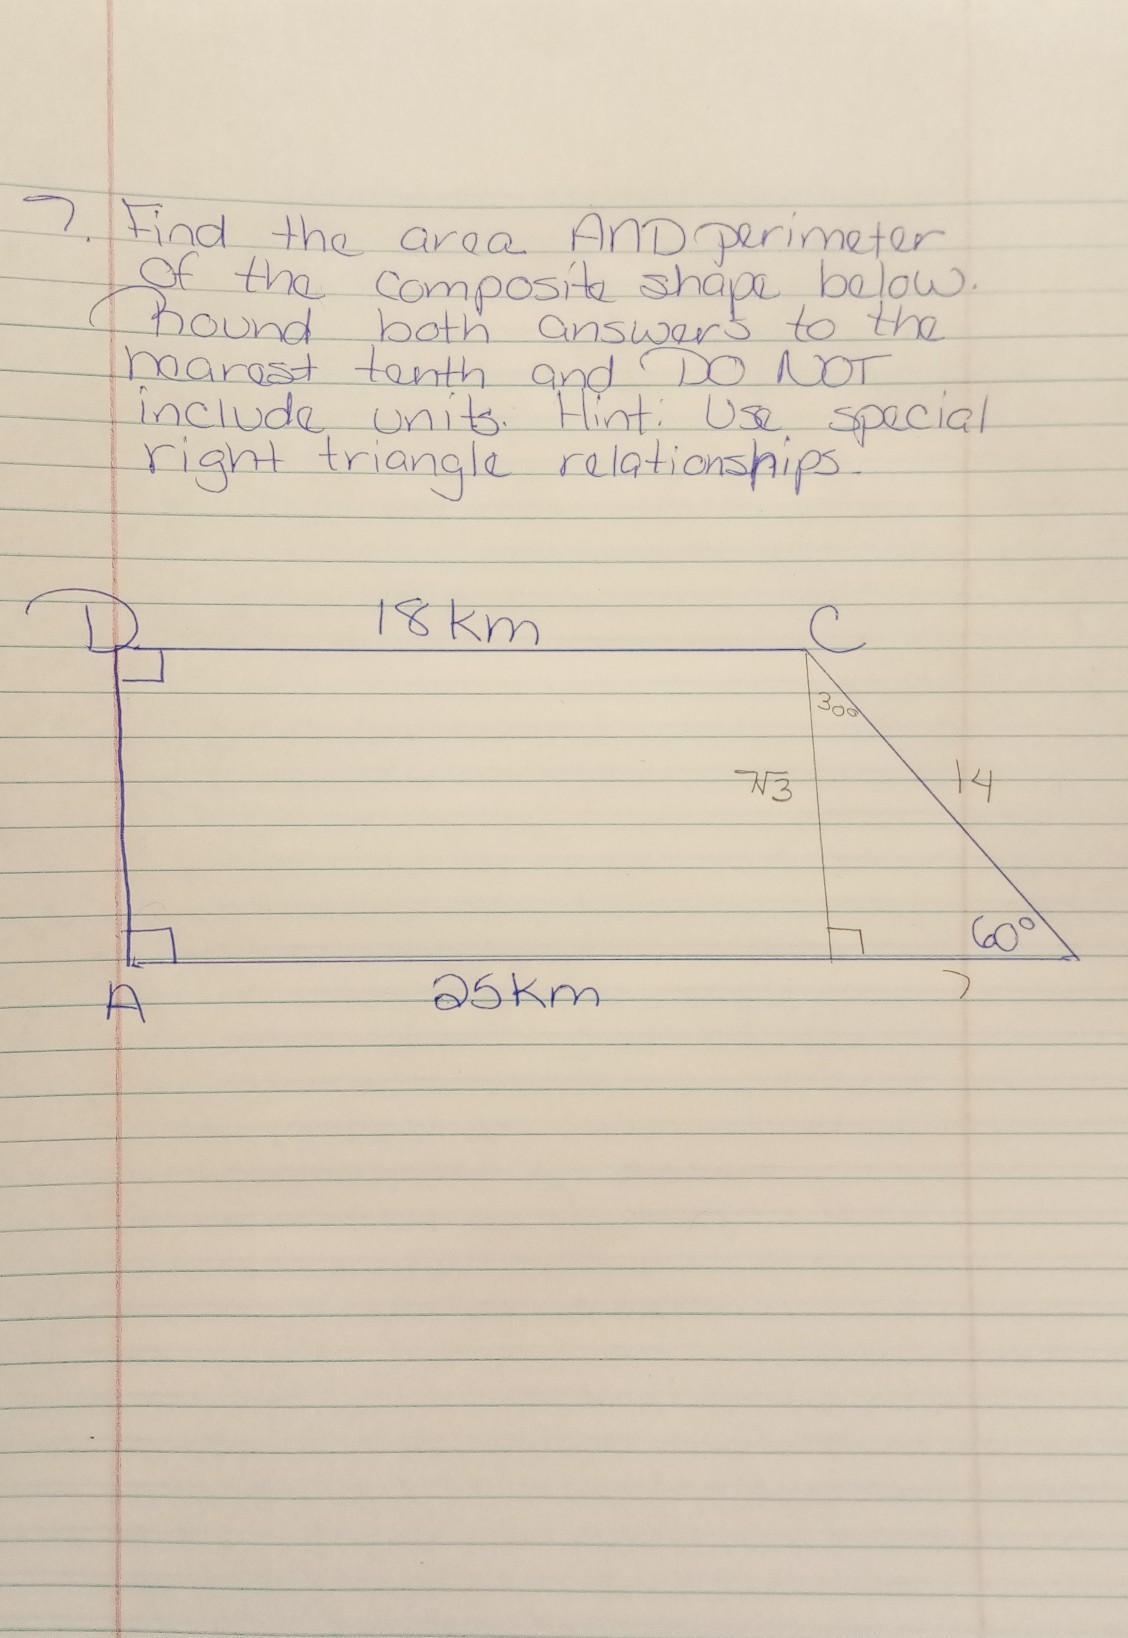 7. Find the area AND perimeter
of the composite shape below.
Round both answers to the
nearest tenth and DO NOT
include units. Hint: Use special
right triangle relationships.
D 18 km C
30°
7√3 14
60°
A 25 km 7